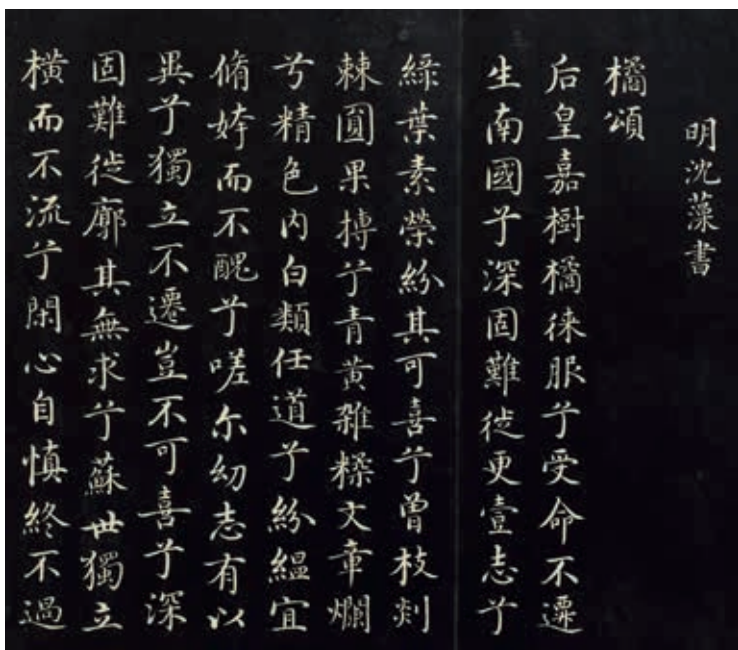 明沈藻書
橘頌
后皇嘉樹橘徠服兮受命不遷
生南國兮深固難徙更壹志兮
綠葉素榮紛其可喜兮曾枝剡
棘圓果摶兮青黃雜糅文章爛
兮精色內白類任道兮紛緼宜
脩姱而不醜兮嗟尔幼志有以
異兮獨立不遷豈不可喜兮深
固難徙廓其無求兮蘇世獨立
橫而不流兮閑心自慎終不過